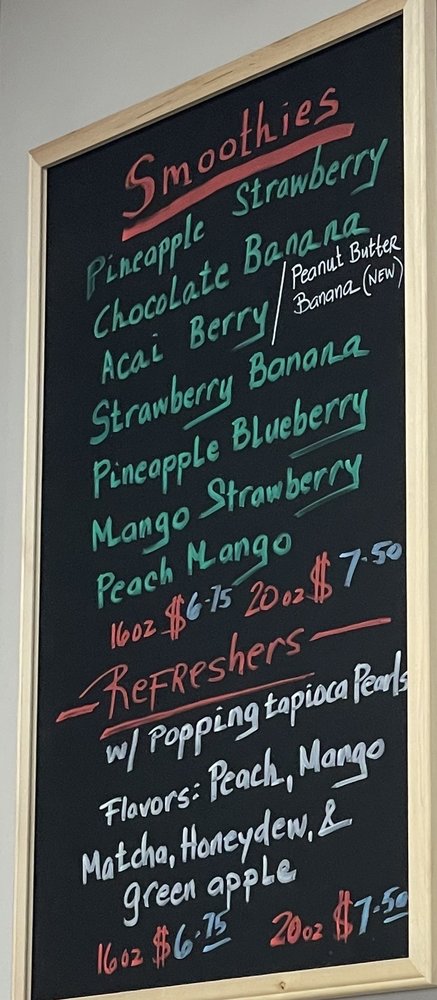 Smoothies
Pineapple Strawberry
Chocolate Banana
Acai Berry / Peanut Butter
Banana (NEW)
Strawberry Banana
Pineapple Blueberry
Mango Strawberry
Peach Mango
16oz $6.75 20oz $7.50
- ReFReshers -
w/ Popping tapioca Pearls
Flavors: Peach, Mango
Matcha, Honeydew, &
green apple
16oz $6.75 20oz $7.50